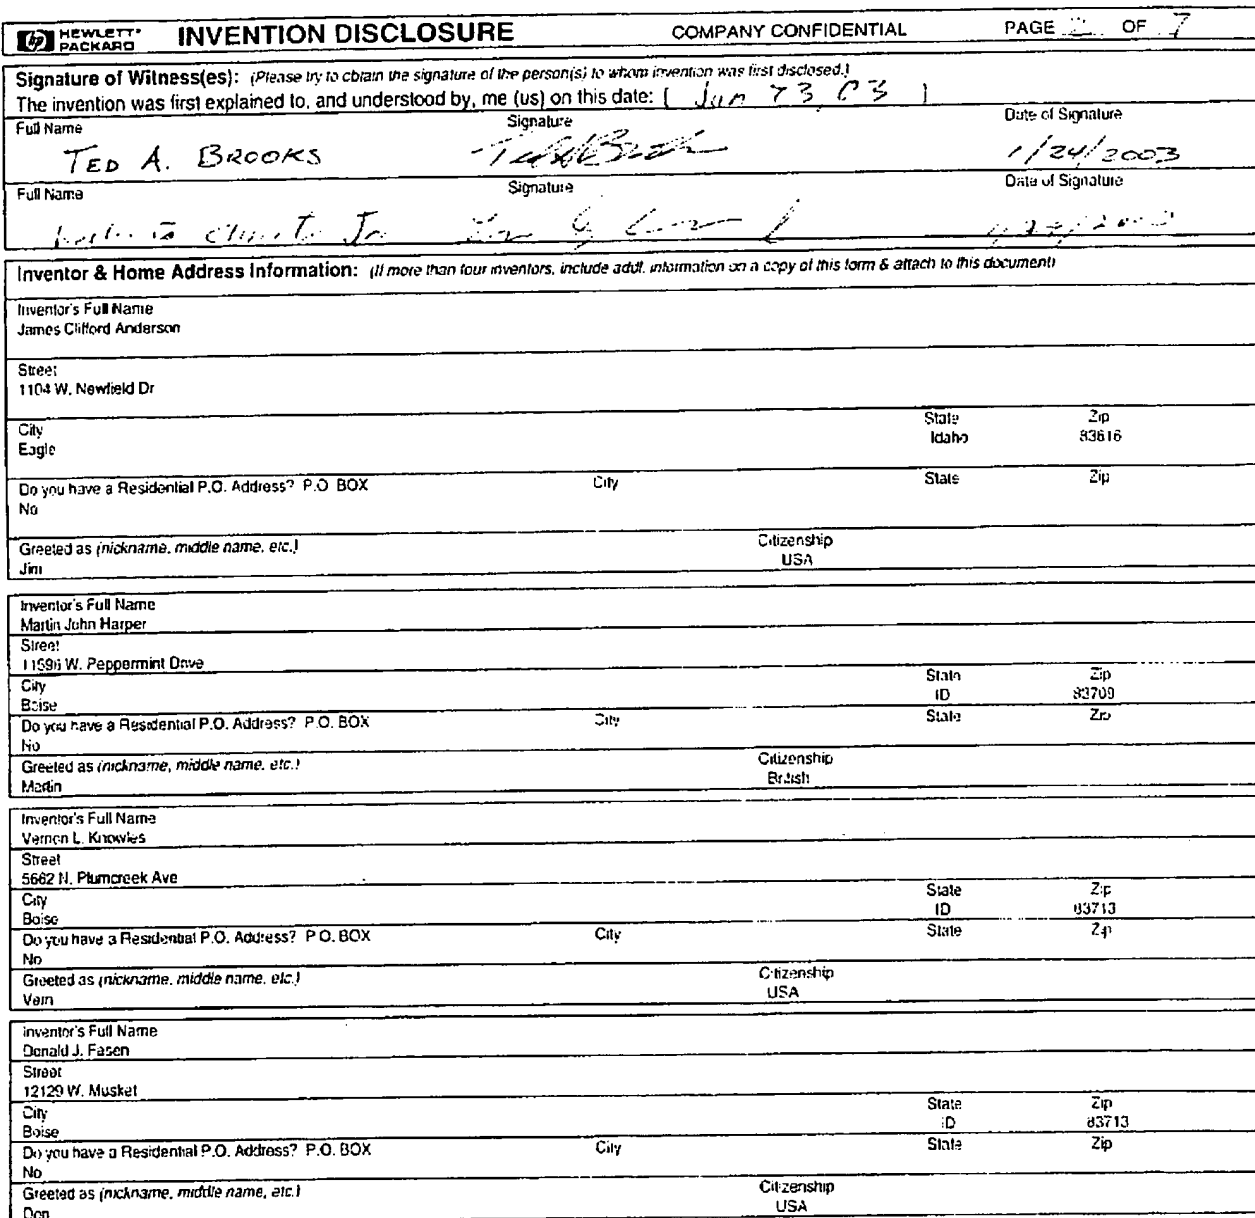 hp HEWLETT PACKARD INVENTION DISCLOSURE COMPANY CONFIDENTIAL PAGE 2 OF 7
Signature of Witness(es): (Please try to obtain the signature of the person(s) to whom invention was first disclosed.)
The invention was first explained to, and understood by, me (us) on this date: [ Jan 23, 03 ]
Full Name Signature Date of Signature
TED A. BROOKS 1/24/2003
Full Name Signature Date of Signature
Inventor & Home Address Information: (If more than four inventors, include addt. information on a copy of this form & attach to this document)
Inventor's Full Name
James Clifford Anderson
Street
1104 W. Newfield Dr
City State Zip
Eagle Idaho 83616
Do you have a Residential P.O. Address? P.O. BOX City State Zip
No
Greeted as (nickname, middle name, etc.) Citizenship
Jim USA
Inventor's Full Name
Martin John Harper
Street
11596 W. Peppermint Drive
City State Zip
Boise ID 83709
Do you have a Residential P.O. Address? P.O. BOX City State Zip
No
Greeted as (nickname, middle name, etc.) Citizenship
Martin British
Inventor's Full Name
Vernon L. Knowles
Street
5662 N. Plumcreek Ave
City State Zip
Boise ID 83713
Do you have a Residential P.O. Address? P.O. BOX City State Zip
No
Greeted as (nickname, middle name, etc.) Citizenship
Vern USA
Inventor's Full Name
Donald J. Fasen
Street
12129 W. Musket
City State Zip
Boise ID 83713
Do you have a Residential P.O. Address? P.O. BOX City State Zip
No
Greeted as (nickname, middle name, etc.) Citizenship
Don USA